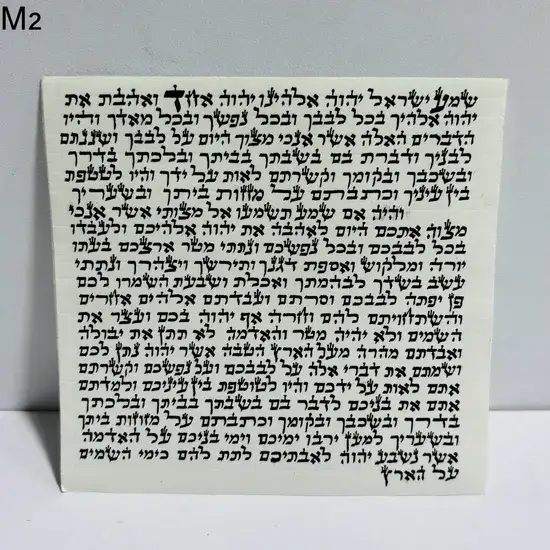 M2
שמע ישראל יהוה אלהינו יהוה אחד ואהבת את
יהוה אלהיך בכל לבבך ובכל נפשך ובכל מאדך והיו
הדברים האלה אשר אנכי מצוך היום על לבבך ושננתם
לבניך ודברת בם בשבתך בביתך ובלכתך בדרך
ובשכבך ובקומך וקשרתם לאות על ידך והיו לטטפת
בין עיניך וכתבתם על מזזות ביתך ובשעריך
והיה אם שמע תשמעו אל מצותי אשר אנכי
מצוה אתכם היום לאהבה את יהוה אלהיכם ולעבדו
בכל לבבכם ובכל נפשכם ונתתי מטר ארצכם בעתו
יורה ומלקוש ואספת דגנך ותירשך ויצהרך ונתתי
עשב בשדך לבהמתך ואכלת ושבעת השמרו לכם
פן יפתה לבבכם וסרתם ועבדתם אלהים אחרים
והשתחויתם להם וחרה אף יהוה בכם ועצר את
השמים ולא יהיה מטר והאדמה לא תתן את יבולה
ואבדתם מהרה מעל הארץ הטבה אשר יהוה נתן לכם
ושמתם את דברי אלה על לבבכם ועל נפשכם וקשרתם
אתם לאות על ידכם והיו לטוטפת בין עיניכם ולמדתם
אתם את בניכם לדבר בם בשבתך בביתך ובלכתך
בדרך ובשכבך ובקומך וכתבתם על מזוזות ביתך
ובשעריך למען ירבו ימיכם וימי בניכם על האדמה
אשר נשבע יהוה לאבתיכם לתת להם כימי השמים
על הארץ